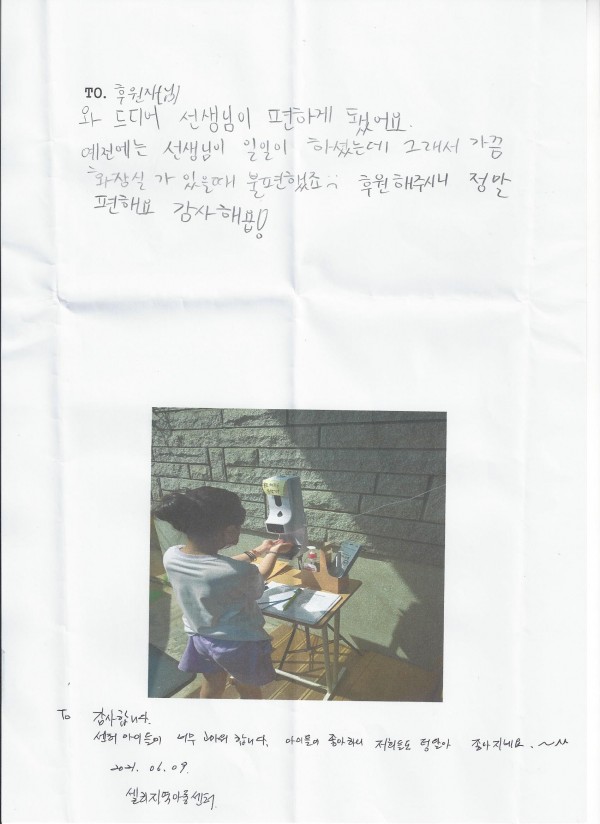 TO. 후원자(님)
와 드디어 선생님이 편하게 됐어요.
예전에는 선생님이 일일이 하셨는데 그래서 가끔
화장실 가 있을때 불편했죠 :( 후원해주시니 정말
편해요 감사해욥!
To 감사합니다.
센터 아이들이 너무 고마워 합니다. 아이들이 좋아하니 저희들도 덩달아 좋아지네요. ~^^
2021. 06. 09.
지역아동센터